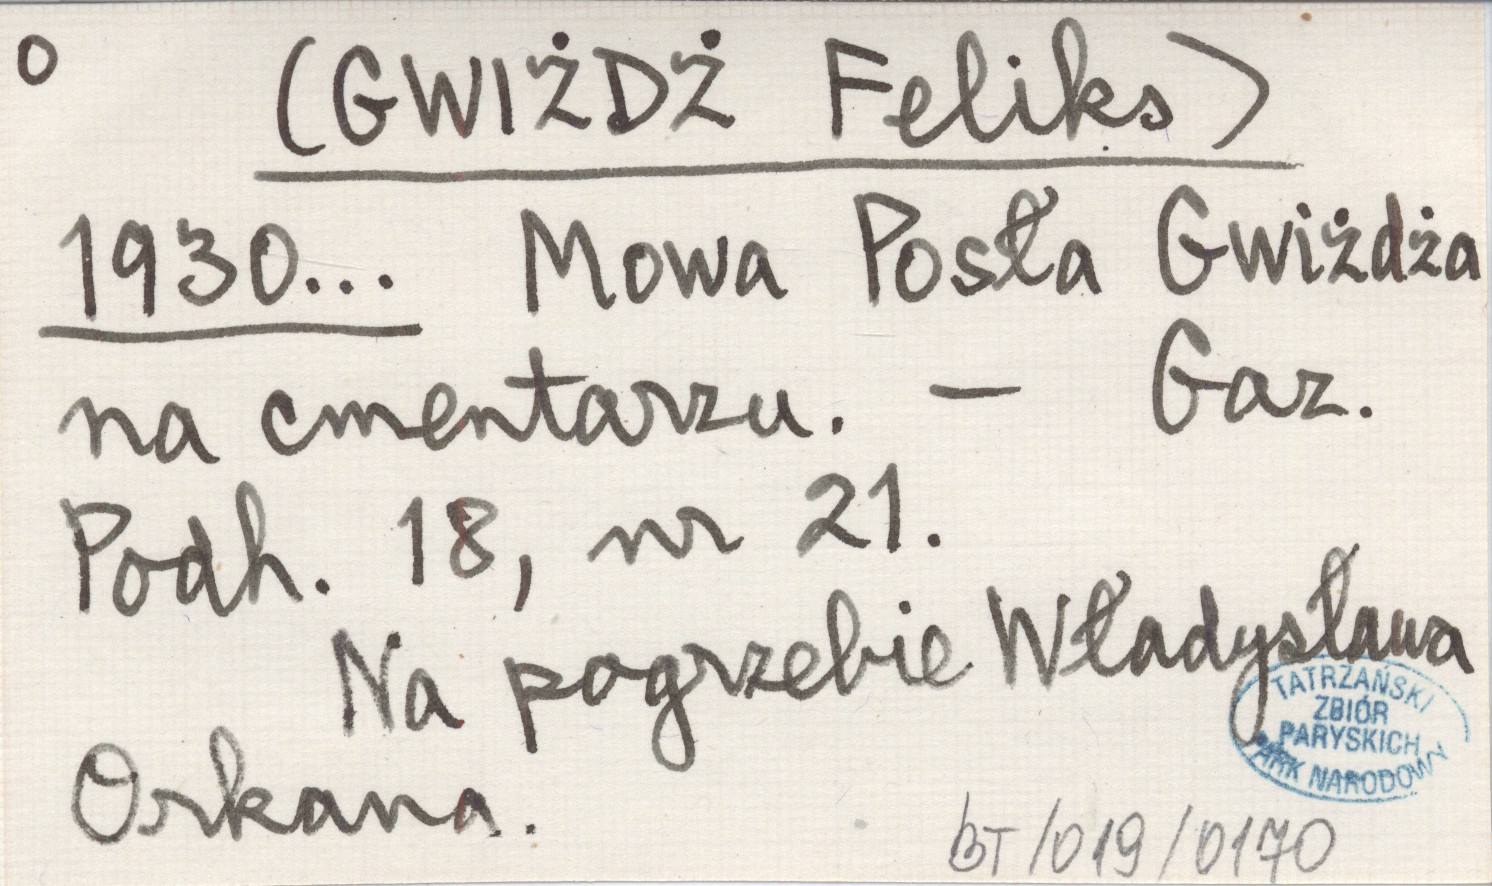 o
(GWIŻDŻ Feliks)
1930... Mowa Posła Gwiżdża
na cmentarzu. — Gaz.
Podh. 18, nr 21.
Na pogrzebie Władysława
Orkana.
TATRZAŃSKI
ZBIÓR
PARYSKICH
PARK NARODOWY
BT/019/0170